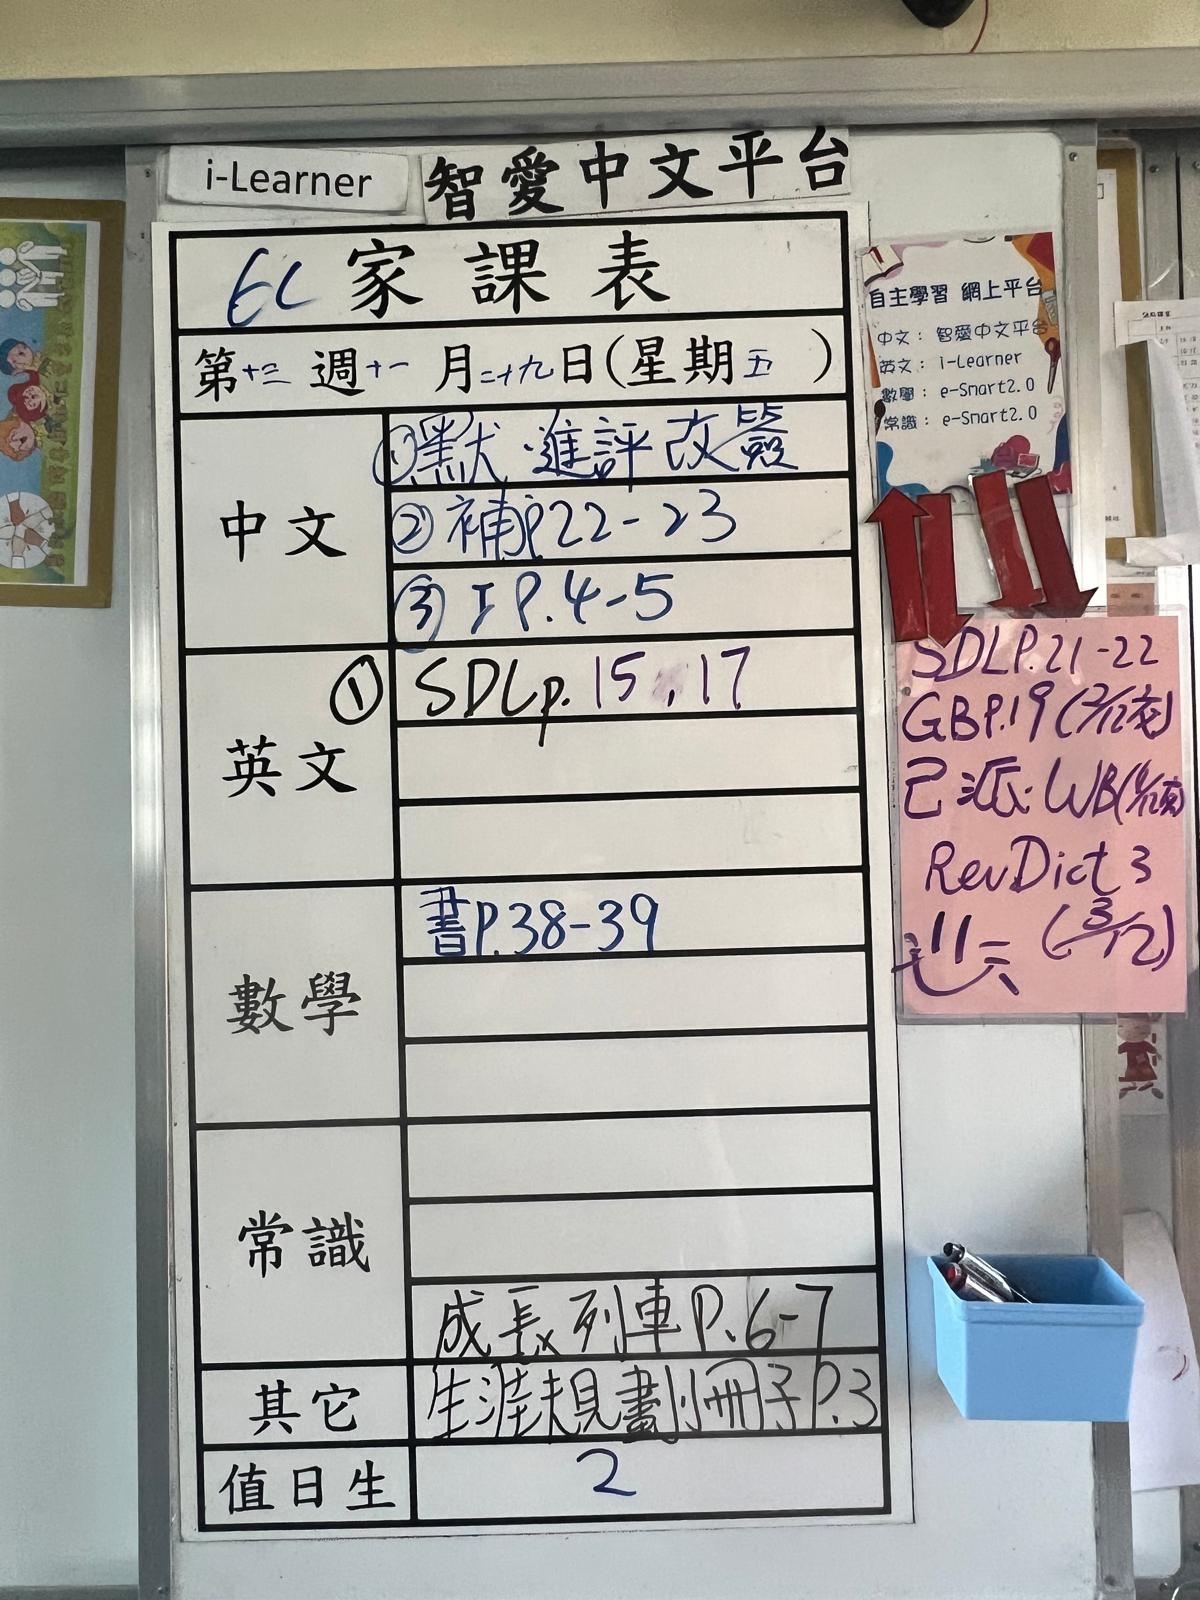 i-Learner 智愛中文平台
6C 家課表
第十三週十一月二十九日(星期五)
中文
①默.進評改簽
②補P22-23
③工P.4-5
英文
①SDLp.15,17
數學
書P.38-39
常識
成長列車P.6-7
其它
生涯規劃小冊子P.3
值日生
2
自主學習 網上平台
中文：智愛中文平台
英文：i-Learner
數學：e-Smart2.0
常識：e-Smart2.0
SDLP.21-22
GBP.19(2/12交)
已派:WB(
RevDict 3
(3/12)